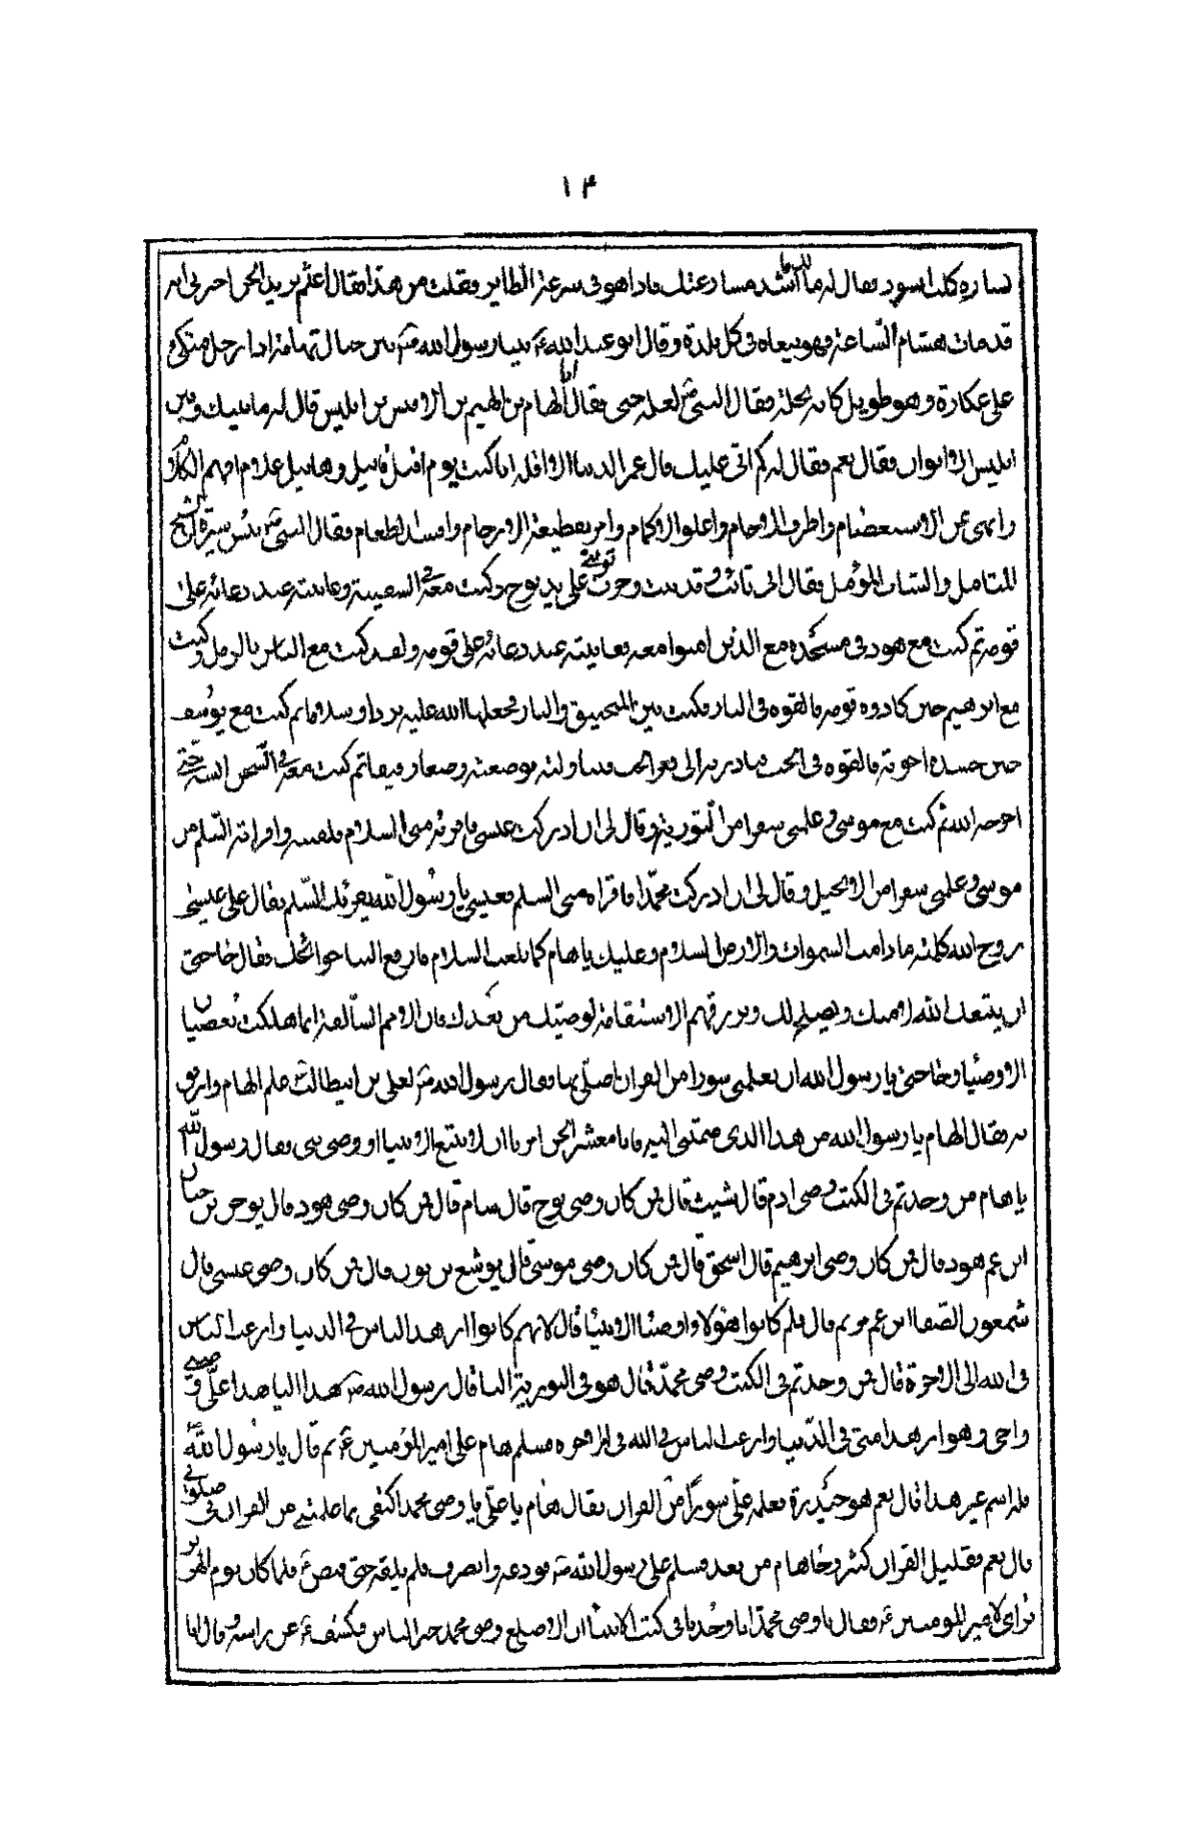 ١٤
يساره كلب اسود فقال له مالك ما اشد مسارعتك فاذا هو في سرعة الطاير فقلت من هذا فقال اعثم بريد الجن اخبرني انه
قد مات هشام الساعة فهو ينعاه في كل بلدة وقال ابو عبد الله ع بينا رسول الله ص بين جبال تهامة اذا رجل متكئ
على عكازة وهو طويل كانه نخلة فقال النبي ص لعله جني فقال انا الهام بن الهيم بن الاقيس بن ابليس قال له ما بينك وبين
ابليس الا ابوان فقال نعم فقال له كم اتى عليك قال عمر الدنيا الا اقله انا كنت يوم اقتل قابيل وهابيل غلام افهم الكلام
وانهى عن الاستعصام واطوف الاجام واعلو الاكام وامر بقطيعة الارحام وافساد الطعام فقال النبي ص بئس سيرة الشيخ
المتامل والشاب المؤمل فقال اني تائب وقد تبت وجرت توبتي على يد نوح وكنت معه في السفينة وعاتبته عند دعائه على
قومه ثم كنت مع هود في مسجده مع الذين امنوا معه فعاتبته عند دعائه على قومه ولقد كنت مع الناس بالرمل وكنت
مع ابرهيم حين كاده قومه فالقوه في النار فكنت بين المنجنيق والنار فجعلها الله عليه بردا وسلاما ثم كنت مع يوسف
حين حسده اخوته فالقوه في الجب فبادرته الى قعر الجب فتناولته فوضعته وضعا رفيقا ثم كنت معه في السجن انسه حتى
اخرجه الله ثم كنت مع موسى وعلمني سفرا من التورية وقال لي ان ادركت عيسى فاقرئه مني السلام فلقيته واقراته السلم من
موسى وعلمني سفرا من الانجيل وقال لي ان ادركت محمدا فاقراه مني السلم فعيسى يا رسول الله يقرئك السلم فقال على عيسى
روح الله كلمته ما دامت السموات والارض السلام وعليك يا هام كما بلغت السلام فارفع الينا حوائجك فقال حاجتي
ان يبقيك الله لامتك ويصلحهم لك ويرزقهم الاستقامة لوصيك من بعدك فان الامم السالفة انما هلكت بعصيان
الاوصياء وحاجتي يا رسول الله ان تعلمني سورا من القران اصلي بها فقال رسول الله ص لعلي بن ابيطالب علم الهام وارفق
به فقال الهام يا رسول الله من هذا الذي ضممتني اليه فانا معشر الجن امرنا ان لا نتبع الا نبيا او وصي نبي فقال رسول الله
يا هام من وجدتم في الكتب وصي ادم قال شيث قال فمن كان وصي نوح قال سام قال فمن كان وصي هود قال يوحن بن حنان
ابن عم هود قال فمن كان وصي ابرهيم قال اسحق قال فمن كان وصي موسى قال يوشع بن نون قال فمن كان وصي عيسى قال
شمعون الصفا ابن عم مريم قال فلم كانوا هؤلاء اوصياء الانبياء قال لانهم كانوا ازهد الناس في الدنيا وارغب الناس
في الله الى الاخرة قال فمن وجدتم في الكتب وصي محمد قال هو في التورية اليا قال رسول الله ص هذا اليا هذا علي وصيي
واخي وهو ازهد امتي في الدنيا وارغب الناس في الله في الاخره فسلم هام على امير المؤمنين ع ثم قال يا رسول الله
فله اسم غير هذا قال نعم هو حيدرة فعلمه علي سورا من القران فقال هام يا علي يا وصي محمد اكتفي بما علمتني من القران في صلوتي
قال نعم فقليل القران كثير وجاء هام من بعد فسلم على رسول الله ص فودعه وانصرف فلم يلقه حتى قبض ع فلما كان يوم الهرير
تراءى لامير المؤمنين ع وقال يا وصي محمد انا وجدنا في كتب الانبياء ان الاصلع وصي محمد خير الناس فكشف ع عن راسه وقال انا